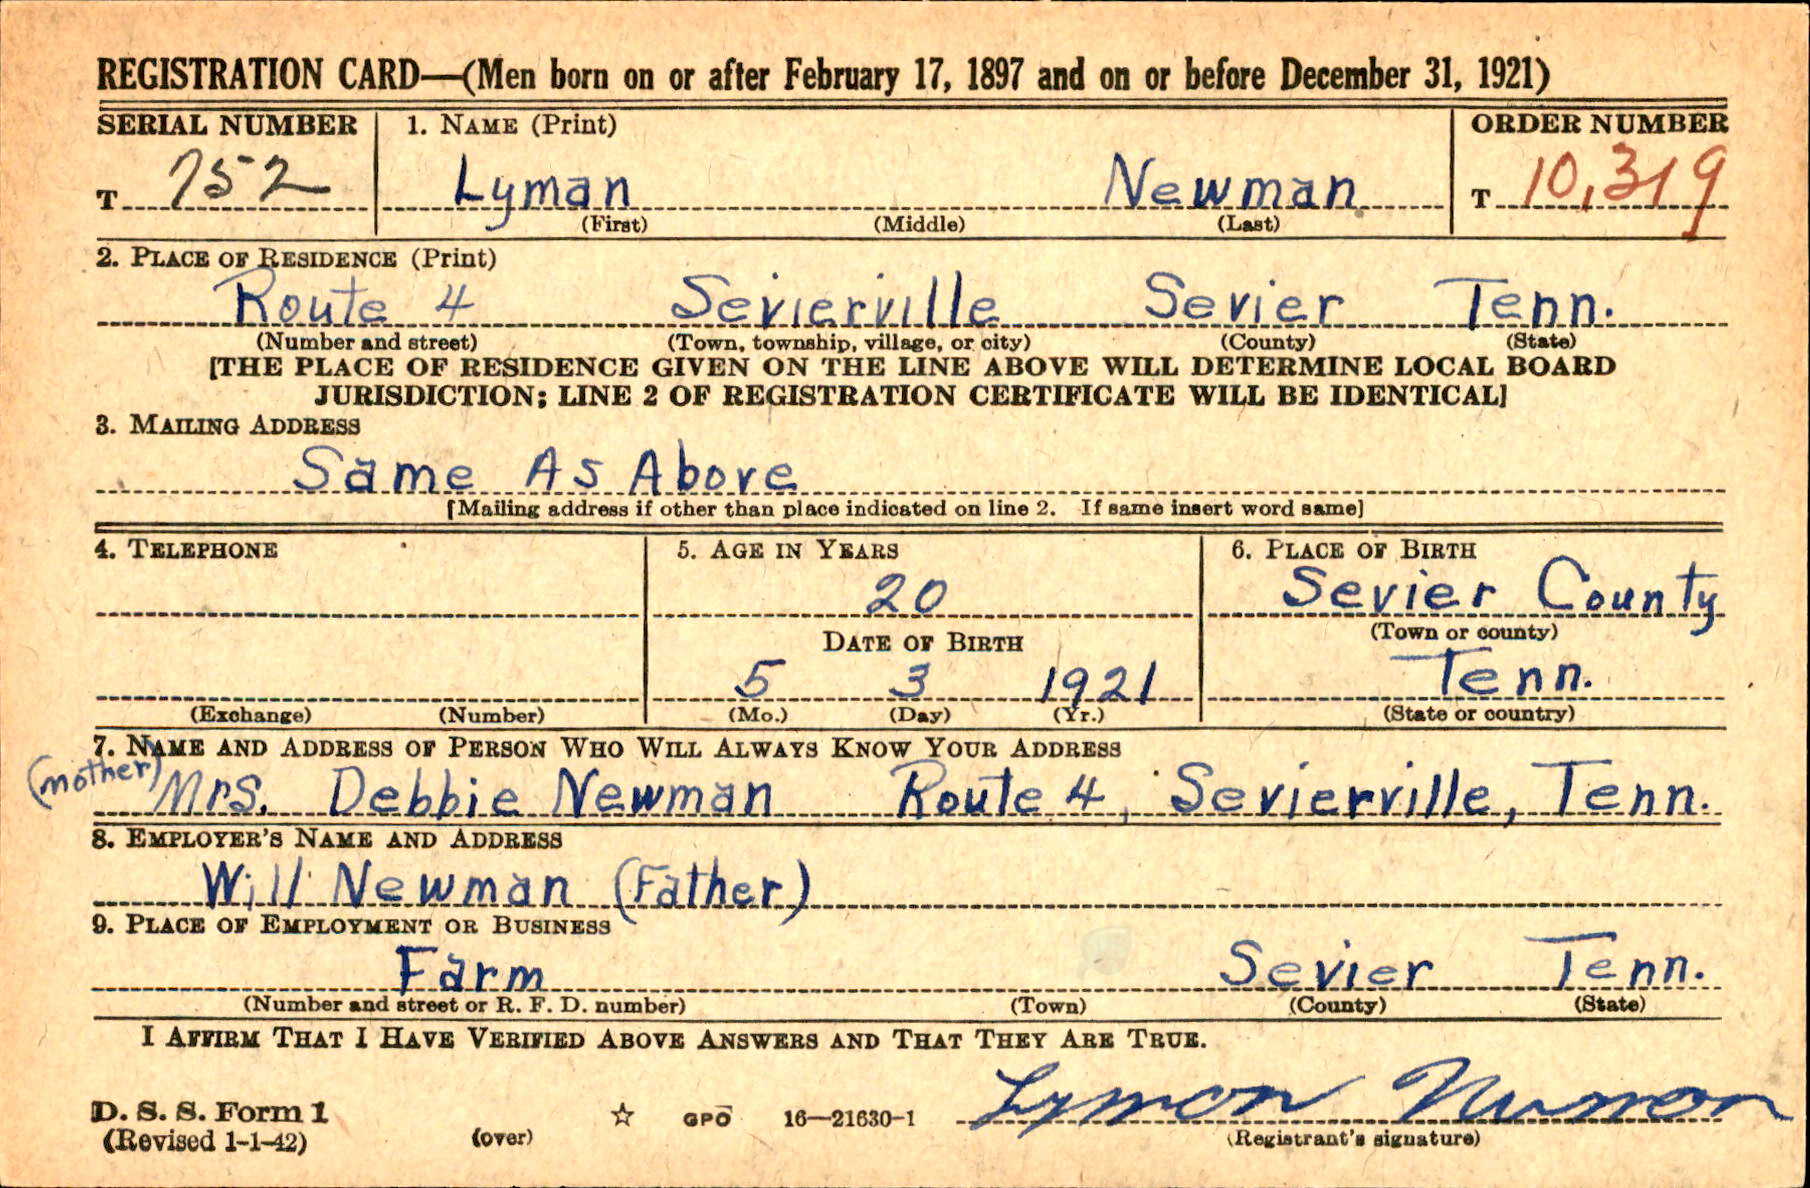 REGISTRATION CARD—(Men born on or after February 17, 1897 and on or before December 31, 1921)
SERIAL NUMBER 1. NAME (Print) ORDER NUMBER
T 752 Lyman Newman T 10,319
(First) (Middle) (Last)
2. PLACE OF RESIDENCE (Print)
Route 4 Sevierville Sevier Tenn.
(Number and street) (Town, township, village, or city) (County) (State)
[THE PLACE OF RESIDENCE GIVEN ON THE LINE ABOVE WILL DETERMINE LOCAL BOARD
JURISDICTION; LINE 2 OF REGISTRATION CERTIFICATE WILL BE IDENTICAL]
3. MAILING ADDRESS
Same As Above
[Mailing address if other than place indicated on line 2. If same insert word same]
4. TELEPHONE 5. AGE IN YEARS 6. PLACE OF BIRTH
20 Sevier County
DATE OF BIRTH (Town or county)
5 3 1921 Tenn.
(Exchange) (Number) (Mo.) (Day) (Yr.) (State or country)
7. NAME AND ADDRESS OF PERSON WHO WILL ALWAYS KNOW YOUR ADDRESS
(mother) Mrs. Debbie Newman Route 4, Sevierville, Tenn.
8. EMPLOYER'S NAME AND ADDRESS
Will Newman (Father)
9. PLACE OF EMPLOYMENT OR BUSINESS
Farm Sevier Tenn.
(Number and street or R. F. D. number) (Town) (County) (State)
I AFFIRM THAT I HAVE VERIFIED ABOVE ANSWERS AND THAT THEY ARE TRUE.
D. S. S. Form 1 ☆ GPO 16—21630-1 Lyman Newman
(Revised 1-1-42) (over) (Registrant's signature)